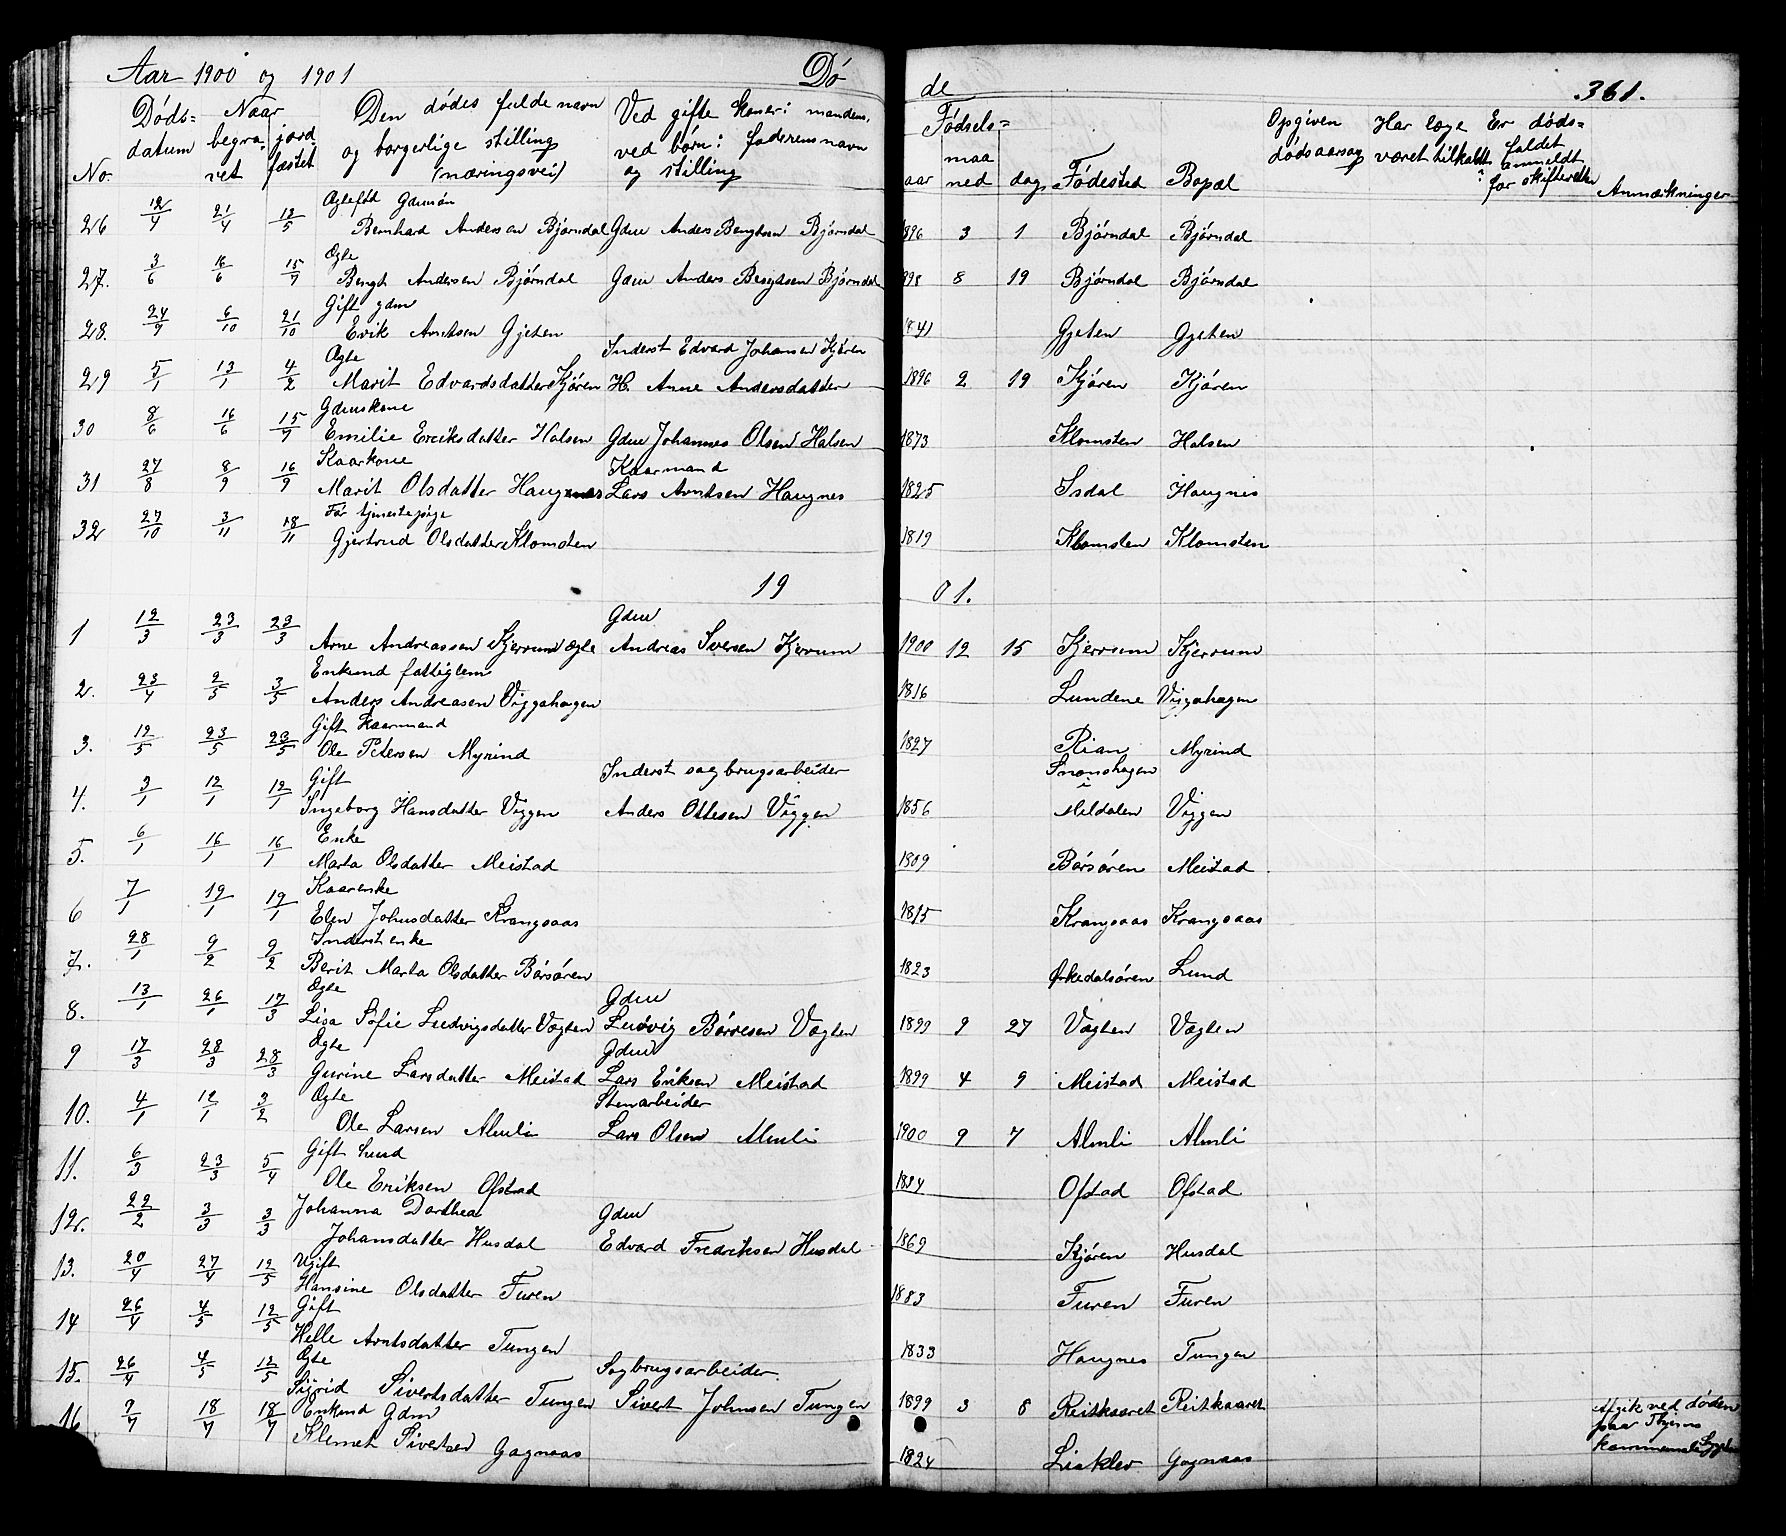 Aar 1900 og 1901 Dö de 361.
No. Döds= datum Naar begra- vet jord- fæstet Den dödes fulde navn og borgerlige stilling (næringsvei) Ved gifte koner: mandens, ved børn: faderens navn og stilling Födsels= aar maa ned dag Födested Bopæl Opgiven dödsaarsag Har læge været tilkaldt? Er döds= faldet anmeldt for skifteretten Anmærkninger
Ægtefödt Gdmsön
26 12/4 21/4 12/5 Bernhard Andersen Bjørndal Gdm Anders Bengtsen Bjørndal 1896 3 1 Bjørndal Bjørndal
Ægte
27. 3/6 16/6 15/7 Bengt Andersen Bjørndal Gdm Anders Bengtsen Bjørndal 1898 8 19 Bjørndal Bjørndal
Gift gdm
28. 24/9 6/10 21/10 Erik Arntsen Gjeten 1841 Gjeten Gjeten
Ægte Inderst Edvard Johansen Kjøren
29 5/1 13/1 4/2 Marit Edvardsdatter Kjøren H. Anne Andersdatter 1896 2 19 Kjøren Kjøren
Gdmskone
30 8/6 16/6 15/7 Emilie Eriksdatter Halsen Gdm Johannes Olsen Halsen 1873 Klomsten Halsen
Kaarkone Kaarmand
31 27/8 8/9 16/9 Marit Olsdatter Haugnes Lars Arntsen Haugnes 1825 Isdal Haugnes
Før tjenestepige
32 27/10 3/11 18/11 Gjertrud Olsdatter Klomsten 1819 Klomsten Klomsten
1901.
Gdm
1 12/3 23/3 23/3 Arne Andreassen Kjerrum ægte Andreas Iversen Kjerrum 1900 12 15 Kjerrum Kjerrum
Enkmd fattiglem
2. 23/4 2/5 3/5 Anders Andreasen Viggahagen 1816 Lundene Viggahagen
Gift Kaarmand
3. 12/5 23/5 23/5 Ole Petersen Myrind 1827 Rian Myrind
Gift Inderst sagbrugsarbeider Snonshagen i
4. 3/1 12/1 12/1 Ingeborg Hansdatter Viggen Anders Ottesen Viggen 1856 Meldalen Viggen
Enke
5. 6/1 16/1 16/1 Marta Olsdatter Meistad 1809 Børsøren Meistad
Kaarenke
6 7/1 19/1 19/1 Elen Johnsdatter Krangsaas 1815 Krangsaas Krangsaas
Inderst enke
7. 28/1 9/2 9/2 Berit Marta Olsdatter Børsøren 1823 Orkedalsøren Lund
Ægte Gdm
8. 13/1 26/1 17/3 Lisa Sofie Ludvigsdatter Vægten Ludvig Børresen Vægten 1899 9 27 Vægten Vægten
Ægte Gdm
9 17/3 28/3 28/3 Gurine Larsdatter Meistad Lars Eriksen Meistad 1899 4 9 Meistad Meistad
Ægte Stenarbeider
10. 4/1 12/1 3/2 Ole Larsen Almli Lars Olsen Almli 1900 9 7 Almli Almli
Gift
11. 6/3 23/3 5/4 Ole Eriksen Ofstad 1834 Ofstad Ofstad
Johanna Dorthea Gdm
12. 22/2 3/3 3/3 Johansdatter Husdal Edvard Fredriksen Husdal 1869 Kjøren Husdal
Ugift
13. 20/4 27/4 12/5 Hansine Olsdatter Furen 1883 Furen Furen
Gift
14 26/4 4/5 12/5 Helle Arntsdatter Tungen 1833 Haugnes Tungen
Ægte Sagbrugsarbeider
15. 26/4 4/5 12/5 Sigrid Sivertsdatter Tungen Sivert Johnsen Tungen 1899 3 8 Reitkaaret Reitkaaret
Enkmd Gdm
16 7/7 18/7 18/7 Klemet Sivertsen Gagnaas 1824 Liaklev Gagnaas Afgik ved döden paa